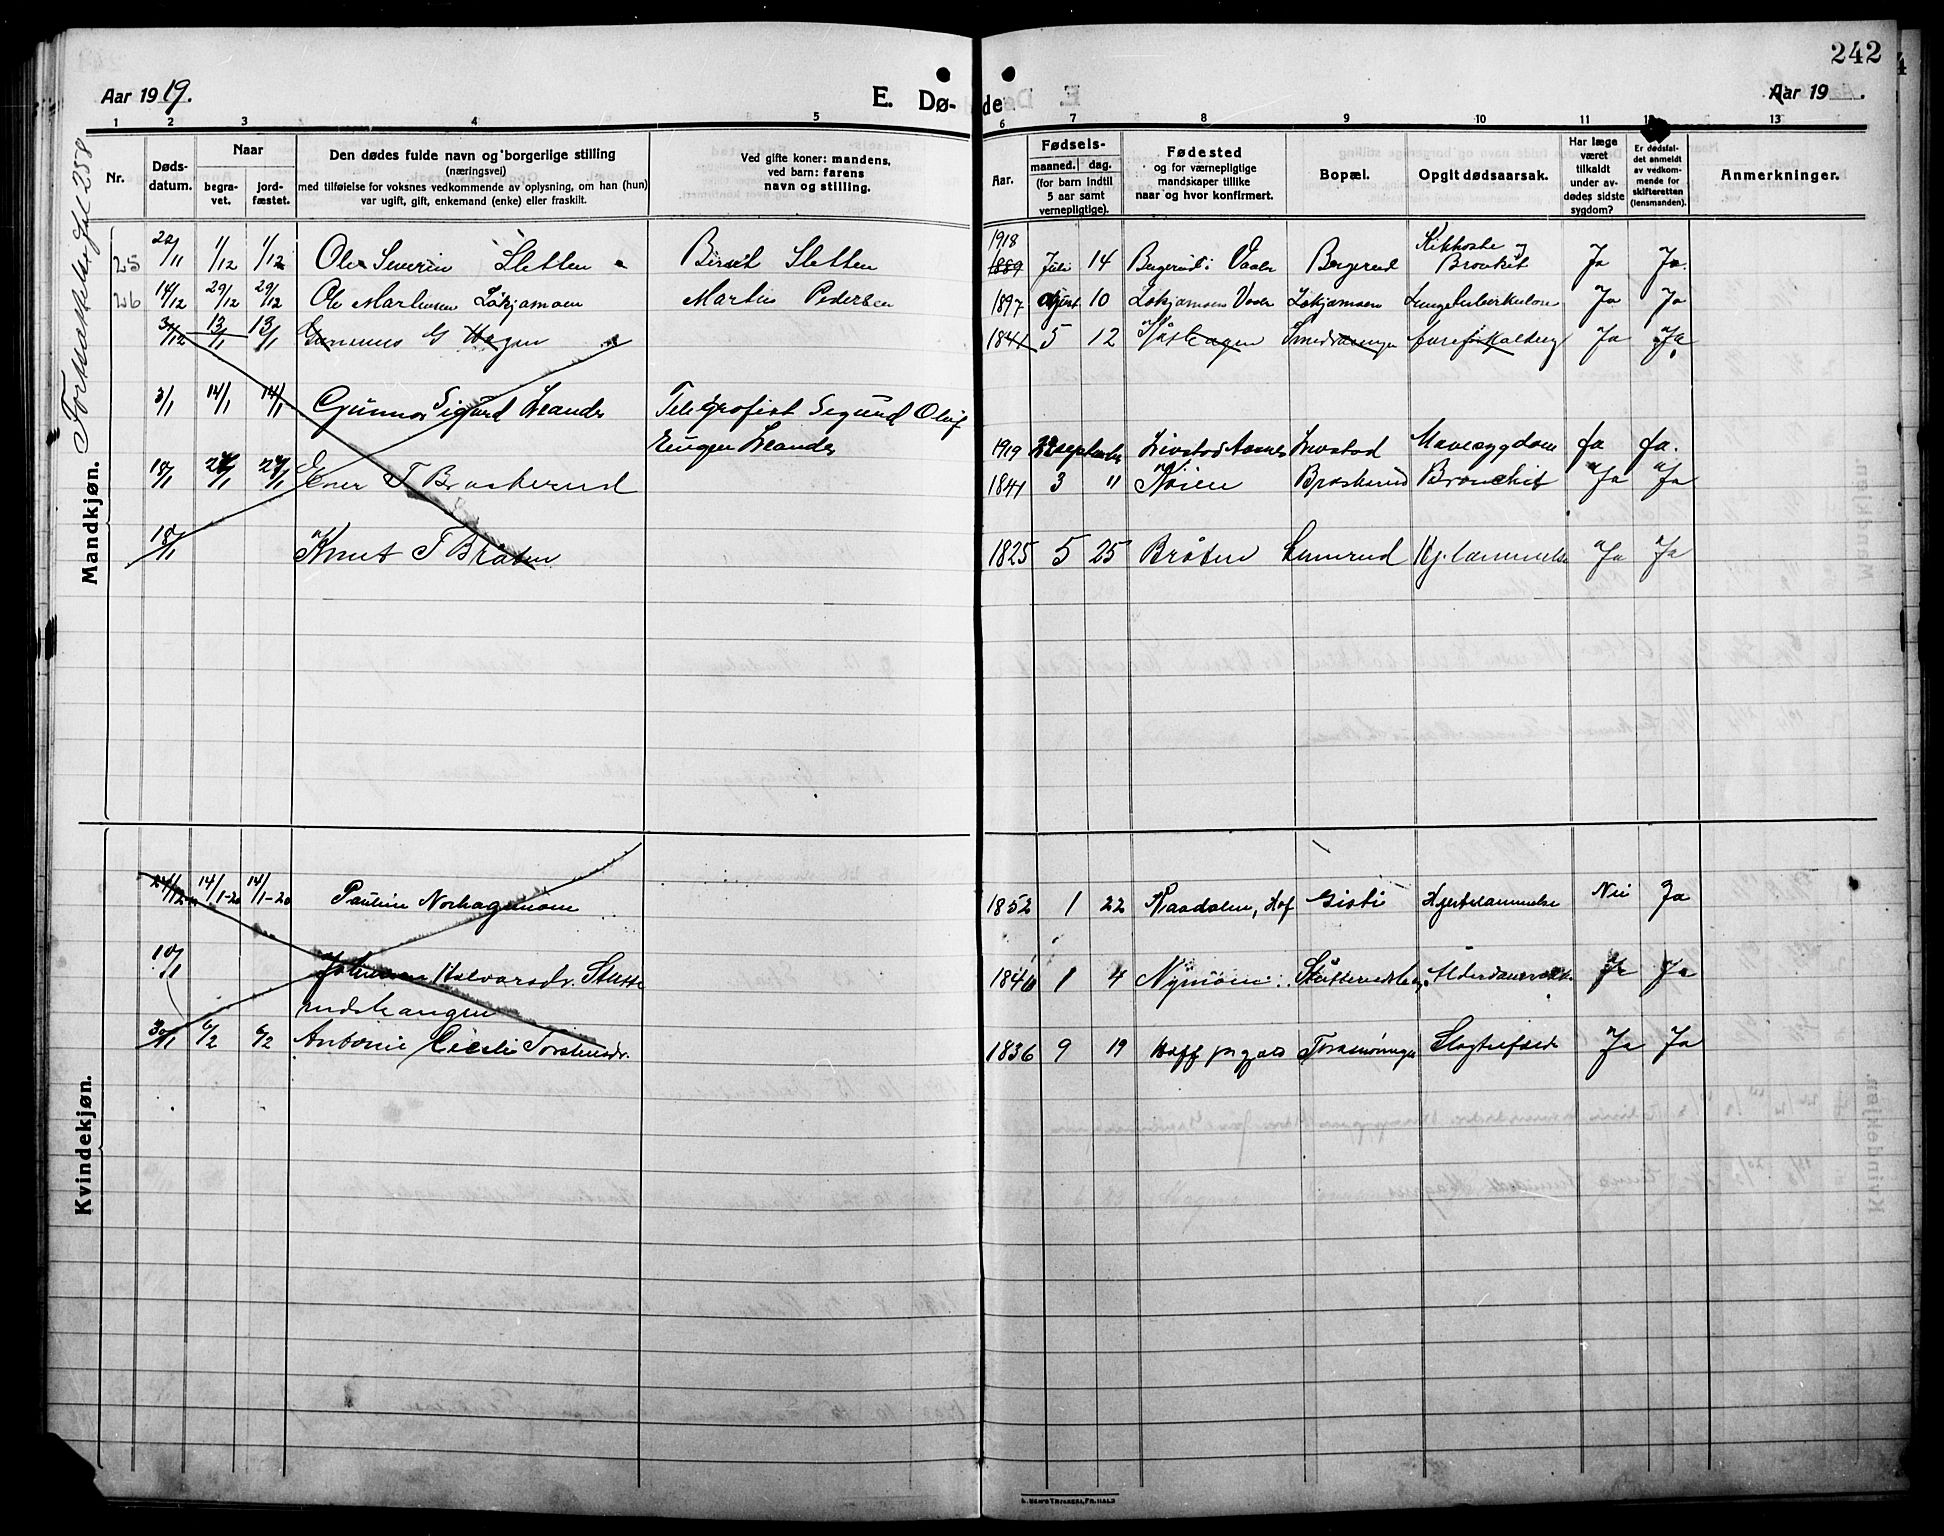 242
Aar 1919.
E. Dø-
de
Aar 19 .
1 2 3 4 5
6 7 8 9 10 11 12 13
Nr.
Døds-
datum.
Naar
begra-
vet.
jord-
fæstet.
Den dødes fulde navn og borgerlige stilling
(næringsvei)
med tilføielse for voksnes vedkommende av oplysning, om han (hun)
var ugift, gift, enkemand (enke) eller fraskilt.
Ved gifte koner: mandens,
ved barn: farens
navn og stilling.
Aar.
Fødsels-
maaned. dag.
(for barn indtil
5 aar samt
vernepligtige).
Fødested
og for værnepligtige
mandskaper tillike
naar og hvor konfirmert.
Bopæl.
Opgit dødsaarsak.
Har læge
været
tilkaldt
under av-
dødes sidste
sygdom?
Er dødsfal-
det anmeldt
av vedkom-
mende for
skifteretten
(lensmanden).
Anmerkninger.
Fortsættes fol 258
Mandkjøn.
25 1/12 1/12 Ole Severin Sletten Berit Sletten 1918 1889 Juli 14 Bergerud i Vaaler Bergerud Kikhoste og
Bronkit Ja Ja.
26 14/12 29/12 29/12 Ole Martinsen Løkjamoen Martin Pedersen 1897 10 Løkjamoen Vaaler Løkjamoen Ja Ja
31/12 13/1 13/1 G Hagen 1841 5 12 Ja Ja
3/1 14/1 14/1 Gunnar Sigurd Leander Telegrafist Sigurd Oluf
Eugen Leander
1919 september Livstad Livstad Mavesygdom Ja Ja.
18/1 27/1 27/1 Ener T Braskerud 1841 3 " Nøien Braskerud Bronchit Ja Ja
18/1 Knut T Bråten 1825 5 25 Bråten Lemrud Hj. lammelse Ja Ja
Kvindekjøn.
24/12 14/1-20 14/1-20 Pauline Norhagamoen 1852 1 22 Kaadalen, Hof Gisti Hjertelammelse Nei Ja
10/1 Halvorsdr. 1840 1 4 Nymoen Ja Ja
30/1 6/2 6/2 Antonie Cecilie Torstensdr. 1836 9 19 Hoff Slagtilfælde Ja Ja